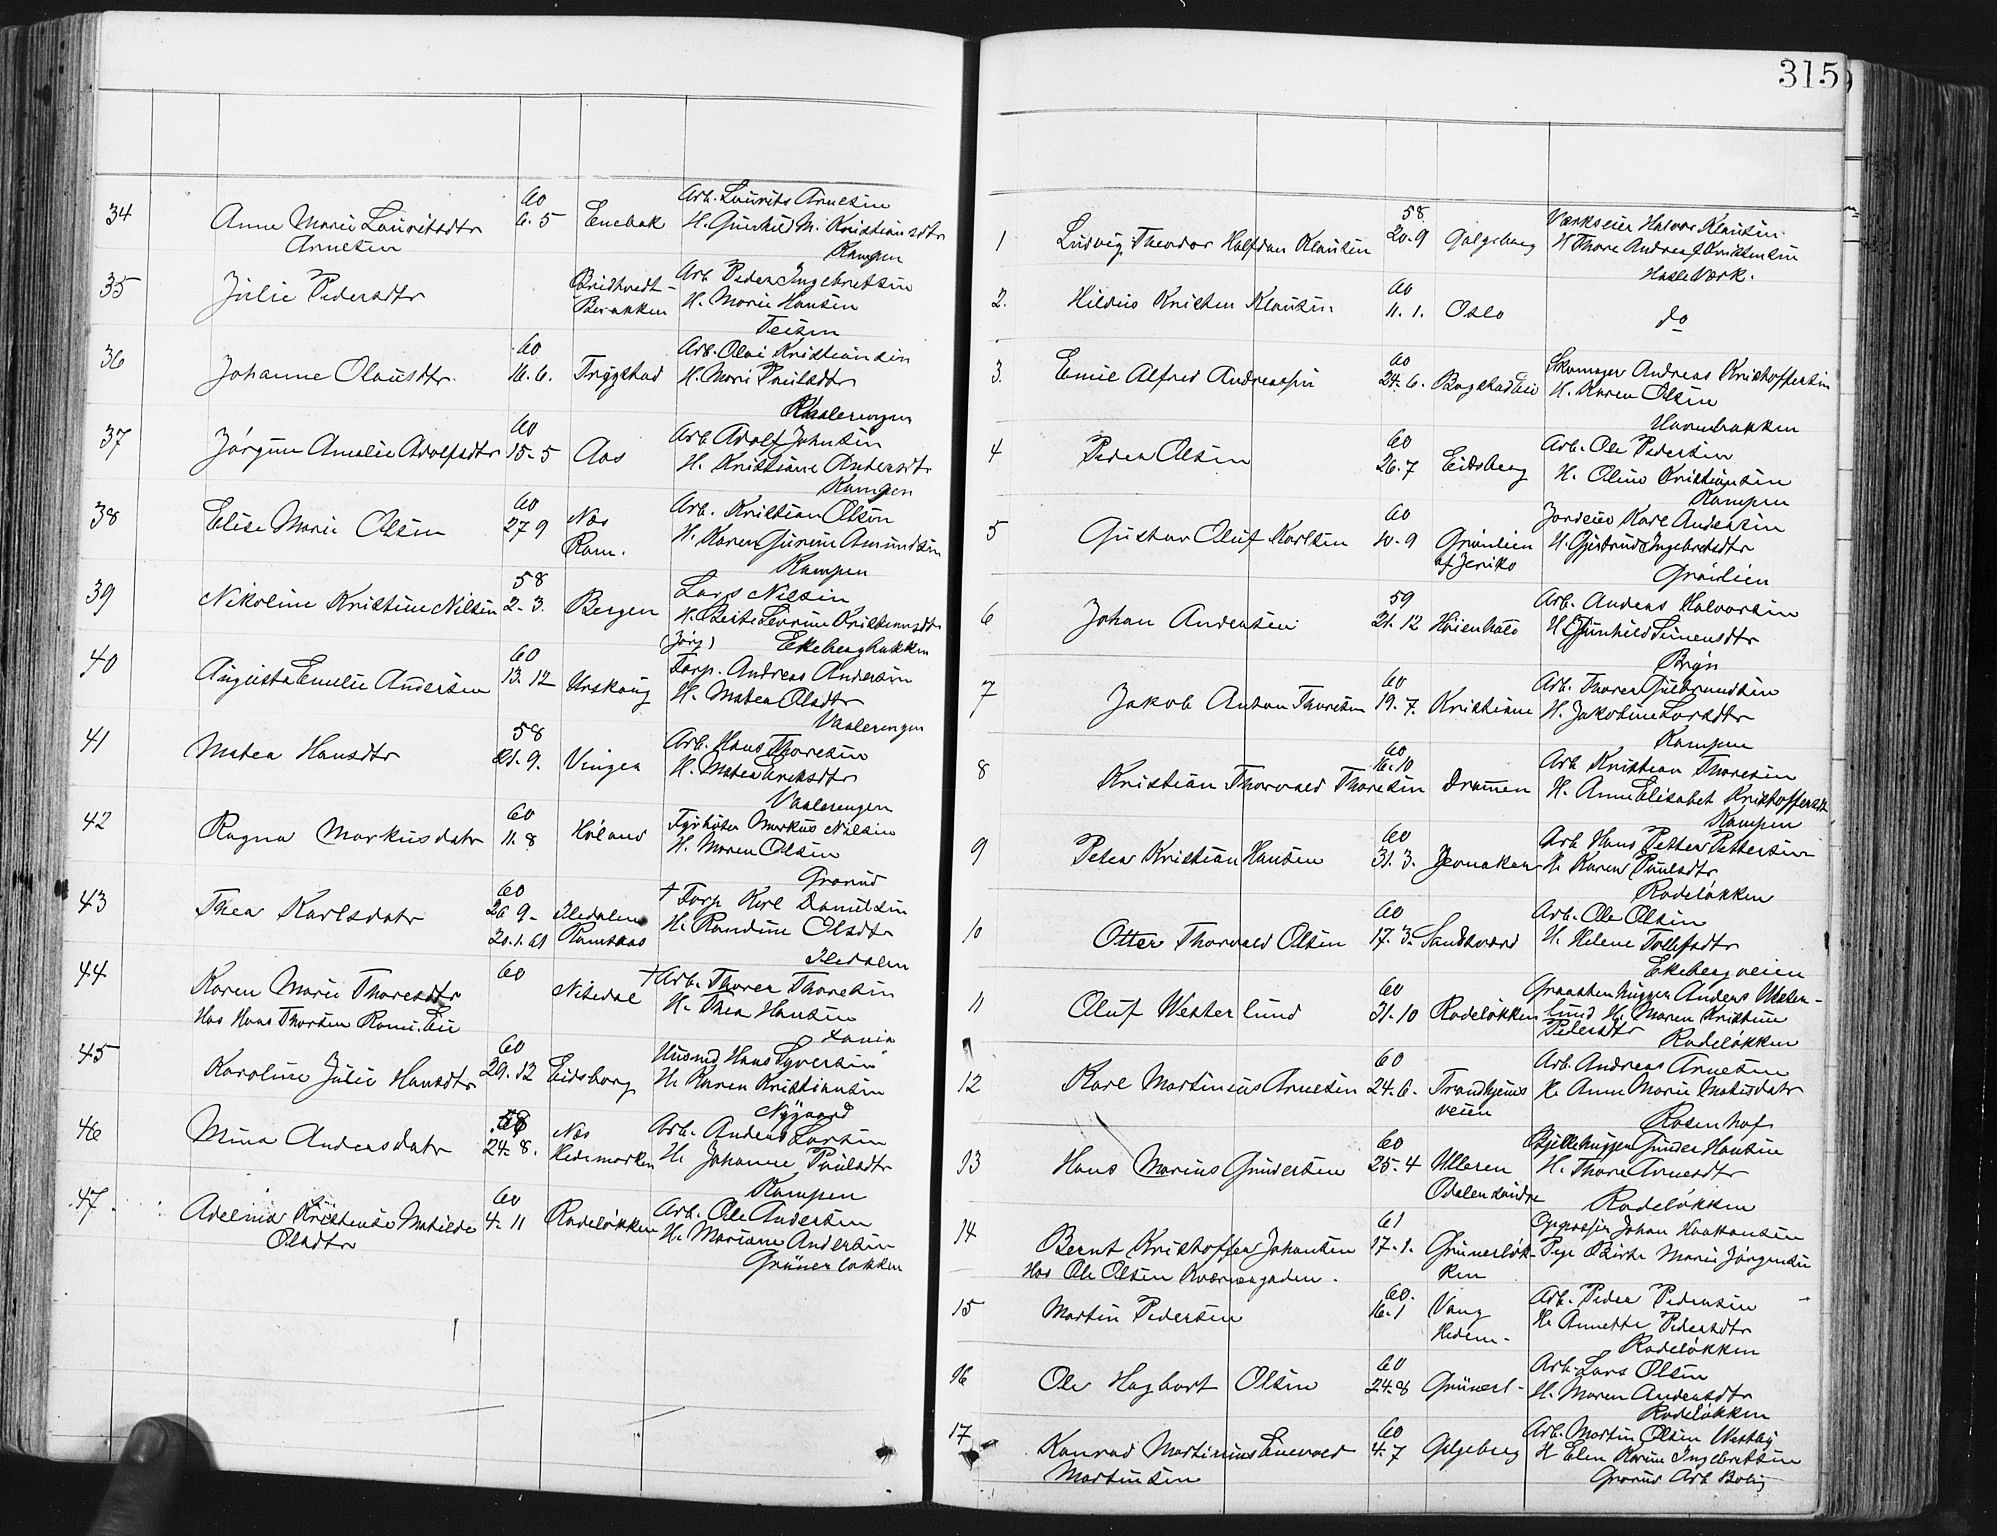 315
34 Anne Marie Lauritsdtr 60 6.5 Enebak Arb. Laurits Arnesen
Arnesen H. Gunhild M. Kristiansdtr
Kampen
35 Julie Pedersdtr Bredtvedt- Arb Peder Ingebretsen
Berakken H. Marie Hansen
Teisen
36 Johanne Olausdtr. 60 16.6. Trygstad Arb. Olai Kristiansen
H. Mari Paulsdtr
Vaalerengen
37 Jörgine Amalie Adolfsdtr 60 15-5 Aas Arb Adolf Johnsen
H. Kristiane Andersdtr
Kampen
38 Elise Marie Olsen 60 27 9 Næs Arb. Kristian Olsen
Rom. H. Karen Gurine Amundsen
Kampen
39 Nikoline Kristine Nilsen 58 2-3. Bergen Lars Nilsen
H. Berte Severine Kristensdtr
(Jörg) Ekebergbakken
40 Augusta Emilie Andersen 60 13.12 Urskoug Forp. Andreas Andersen
H. Matea Olsdtr
Vaalerengen
41 Matea Hansdtr 58 21.9. Vinger Arb. Hans Thoresen
H. Matea Eriksdtr
Vaalerengen
42 Ragna Markusdatr 60 11.8 Höland Fyrböter Markus Nilsen
H. Maren Olsen
Grorud
43 Thea Karlsdatr 60 26 9- Iledalen † Forp Karl Danielsen
20.1.61 Ramsaas H. Randine Olsdtr
Iledalen
44 Karen Marie Thoresdtr 60 Nitedal † Arb. Thorer Thoresen
Hos Hans Thorsen Romi. Eie H. Thea Hansen
45 Karoline Julie Hansdtr 60 29.12 Eidsberg Husmd Hans Syversen
H. Karen Kristiansen
Nygaard
46 Mina Andersdatr 58 24.8. Næs Arb. Anders Larsen
Hedemarken H. Johanne Paulsdtr
Kampen
47 Adelina Kristense Matilde 60 4.11 Rodelökken Arb. Ole Andersen
Olsdtr H. Mariane Andersen
Grünerlökken
1 Ludvig Theodor Halfdan Klausen 58 20.9 Galgeberg Værkseier Halvor Klausen
H Thora Andrea f Kristensen
Hasle Værk.
2. Hildus Kristen Klausen 60 11.1. Oslo do
3. Emil Alfred Andreassen 60 24.6. Bogstad Eie Skomager Andreas Kristoffersen
H. Karen Olsen
4 Peder Olsen 60 26.7 Eidsberg Arb. Ole Pedersen
H. Oline Kristiansen
Kampen
5 Gustav Oluf Karlsen 60 10-9 Grönlien Jordeier Karl Andersen
af Jeriko H. Gjertrud Ingebretsdtr
Grönlien
6 Johan Andersen 59 21.12 Höienhald Arb. Anders Halvorsen
H. Gunhild Simensdtr
Bryn
7 Jakob Anton Thoresen 60 19.7. Kristiania Arb. Thorer Gulbrandsen
H. Jakobine Larsdtr
Kampen
8 Kristian Thorvald Thoresen 60 16.10 Dramen Arb Kristian Thoresen
H. Anne Elisabet Kristoffersdtr
Kampen
9 Peter Kristian Hansen 60 31.3. Jevnaker Arb Hans Petter Pettersen
H. Karen Paulsdtr
Rodelökken
10 Otter Thorvald Olsen 60 17.3. Sandsværd Arb. Ole Olsen
H. Helene Tollefsdtr
Ekebergveien
11 Oluf Westerlund 60 31.10 Rodelökken Graastenhugger Anders Wester-
lund H. Maren Kristine
Pedersdtr Rodelökken
12 Karl Martinius Arnesen 60 24.6. Trondhjems Arb. Andreas Arnesen
veien H. Anne Marie Matisdatr
Rosenhof
13 Hans Marius Gundersen 60 25-4 Ulleren Bjelkehugger Gunder Hansen
Odalen söndre H. Thora Arnesdtr
Rodelökken
14 Bernt Kristoffer Johansen 61 17.1. Grünerlök- Oppasser Johan Haakonsen
ken Pige Berte Marie Jörgensen
Hos Ole Olsen Kværnergaden.
15 Martin Pedersen 60. 16.1 Vang Arb. Peder Pedersen
Hedem- H. Annette Pedersdtr
Rodelökken
16 Ole Hagbart Olsen 60 24.8 Grünerl- Arb. Lars Olsen
H. Maren Andersdtr
Rodelökken
17 Konrad Martinius Enevold 60 4.7 Galgeberg Arb. Martin Olsen Westby
Martinsen H Elen Karine Ingebretsen
Grorud Arb Bolig